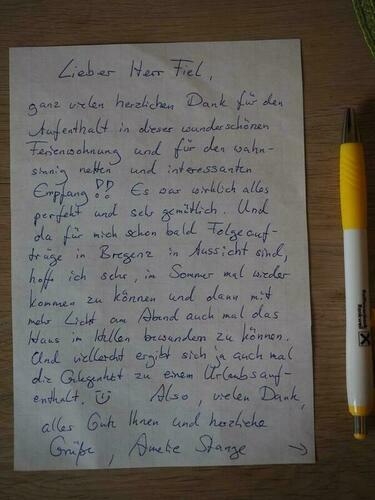 Lieber Herr Fiel,
ganz vielen herzlichen Dank für den
Aufenthalt in dieser wunderschönen
Ferienwohnung und für den wahn-
sinnig netten und interessanten
Empfang!! Es war wirklich alles
perfekt und sehr gemütlich. Und
da für mich schon bald Folgeauf-
träge in Bregenz in Aussicht sind,
hoffe ich sehr, im Sommer mal wieder
kommen zu können und dann mit
mehr Licht am Abend auch mal das
Haus im Hellen bewundern zu können.
Und vielleicht ergibt sich ja auch mal
die Gelegenheit zu einem Urlaubsauf-
enthalt. Also, vielen Dank,
alles Gute Ihnen und herzliche
Grüße, Amelie Stange →